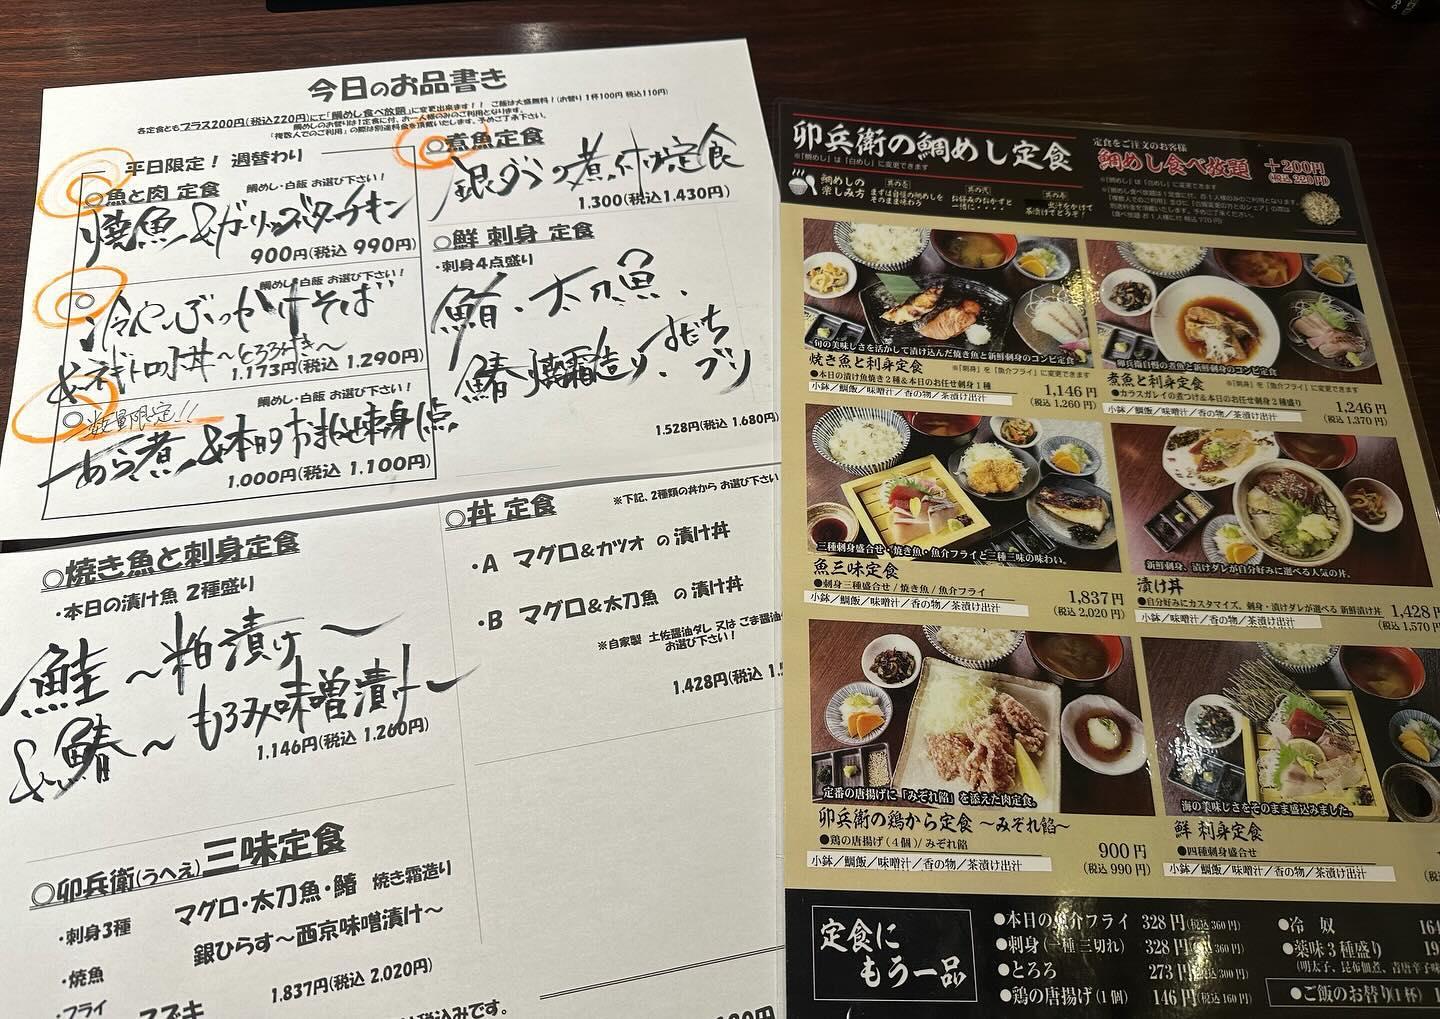 今日のお品書き
各定食ともプラス200円(税込220円)にて「鯛めし食べ放題」に変更出来ます！！ ご飯は大盛無料！(お替り 1杯100円 税込110円)
鯛めしのお替りは1定食に付、お一人様のみのご利用となります。
「複数人でのご利用」の際は別途料金を頂戴いたします。予めご了承下さい。
平日限定！ 週替わり
○魚と肉 定食
鯛めし・白飯 お選び下さい！
焼魚&ガーリックバターチキン
900円(税込 990円)
○
鯛めし・白飯 お選び下さい！
冷やしぶっかけそば
&ネギトロ小丼～とろろ付き～
1.173円(税込 1.290円)
○数量限定!!
鯛めし・白飯 お選び下さい！
あら煮&本日おまかせ刺身1点
1.000円(税込 1.100円)
○煮魚定食
銀ダラの煮付け定食
1.300(税込1.430円)
○鮮 刺身 定食
・刺身4点盛り
鮪・太刀魚・
鰆焼霜造り・すだちブリ
1.528円(税込 1.680円)
○焼き魚と刺身定食
・本日の漬け魚 2種盛り
鮭～粕漬け～
&鰆～もろみ味噌漬け～
1.146円(税込 1.260円)
○丼 定食
※下記、2種類の丼から お選び下さい
・A マグロ&カツオ の漬け丼
・B マグロ&太刀魚 の漬け丼
※自家製 土佐醤油ダレ 又は ごま醤油
お選び下さい！
1.428円(税込 1.5
○卯兵衛(うへえ)三味定食
・刺身3種 マグロ・太刀魚・鰆 焼き霜造り
・焼魚 銀ひらす～西京味噌漬け～
・フライ スズキ
1.837円(税込 2.020円)
税込みです。
卯兵衛の鯛めし定食
※「鯛めし」は「白めし」に変更できます
定食をご注文のお客様
鯛めし食べ放題 +200円
(税込 220円)
鯛めしの
楽しみ方
其の壱
まずは自慢の鯛めしを
そのまま味わう
其の弐
お好みのおかずと
一緒に・・・・
其の参
出汁をかけて
茶漬けでとうぞ！
旬の美味しさを活かして漬け込んだ焼き魚と新鮮刺身のコンビ定食
焼き魚と刺身定食
※「刺身」を「魚介フライ」に変更できます
●本日の漬け魚焼き2種&本日のお任せ刺身1種
小鉢／鯛飯／味噌汁／香の物／茶漬け出汁
1,146円
(税込 1,260円)
卯兵衛自慢の煮魚と新鮮刺身のコンビ定食
煮魚と刺身定食
※「刺身」を「魚介フライ」に変更できます
●カラスガレイの煮つけ&本日のお任せ刺身2種盛り
小鉢／鯛飯／味噌汁／香の物／茶漬け出汁
1,246円
(税込 1,370円)
三種刺身盛合せ・焼き魚・魚介フライと三種三味の味わい。
魚三味定食
●刺身三種盛合せ/焼き魚/魚介フライ
小鉢／鯛飯／味噌汁／香の物／茶漬け出汁
1,837円
(税込 2,020円)
新鮮刺身、漬けダレが自分好みに選べる人気の丼。
漬け丼
●自分好みにカスタマイズ。刺身・漬けダレが選べる 新鮮漬け丼
小鉢／味噌汁／香の物／茶漬け出汁
1,428円
(税込 1,570円
定番の唐揚げに「みぞれ餡」を添えた肉定食。
卯兵衛の鶏から定食 ～みぞれ餡～
●鶏の唐揚げ(4個)/みぞれ餡
小鉢／鯛飯／味噌汁／香の物／茶漬け出汁
900円
(税込 990円)
海の美味しさをそのまま盛込みました。
鮮 刺身定食
●四種刺身盛合せ
小鉢／鯛飯／味噌汁／香の物／茶漬け出汁
定食に
もう一品
●本日の魚介フライ 328円(税込360円)
●刺身(一種三切れ) 328円(税込360円)
●とろろ 273円(税込300円)
●鶏の唐揚げ(1個) 146円(税込160円)
●冷 奴 164
●薬味3種盛り 19
(明太子、昆布佃煮、青唐辛子味
●ご飯のお替り(1杯)